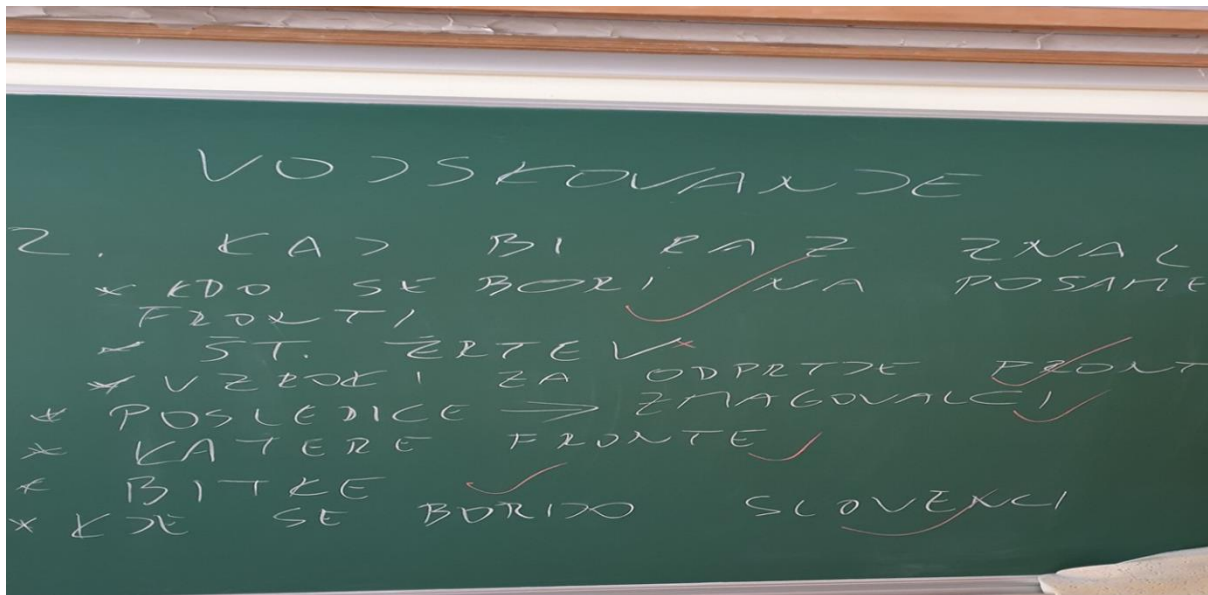 VOJSKOVANJE
2. KAJ BI RAZ ZNAL
* KDO SE BORI NA POSAME
FRONTI
- ŠT. ŽRTEV
* VZROKI ZA ODPRTJE FRONT
* POSLEDICE => ZMAGOVALCI
* KATERE FRONTE
* BITKE
* KJE SE BORIJO SLOVENCI